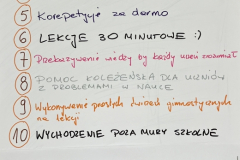 5 Korepetycje za darmo
6 LEKCJE 30 MINUTOWE :)
7 Przekazywanie wiedzy by każdy uczeń zrozumiał
8 POMOC KOLEŻEŃSKA DLA UCZNIÓW
Z PROBLEMAMI W NAUCE
9 Wykonywanie prostych ćwiczeń gimnastycznych
na lekcji
10 WYCHODZENIE POZA MURY SZKOLNE